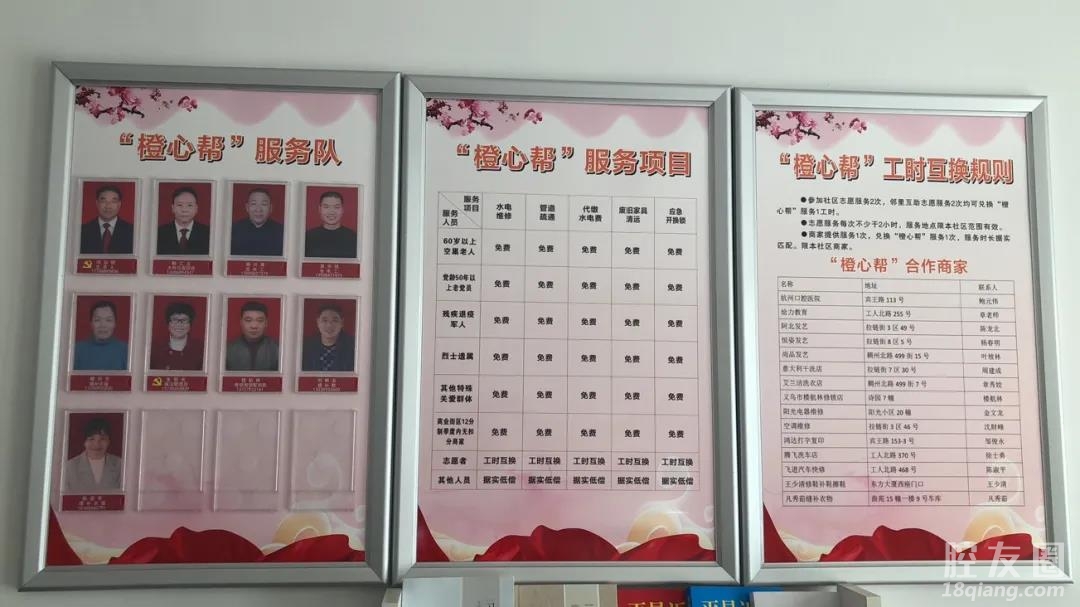 “橙心帮”服务队
“橙心帮”服务项目
服务项目
服务人员
水电维修 管道疏通 代缴水电费 废旧家具清运 应急开换锁
60岁以上空巢老人 免费 免费 免费 免费 免费
党龄50年以上老党员 免费 免费 免费 免费 免费
残疾退疫军人 免费 免费 免费 免费 免费
烈士遗属 免费 免费 免费 免费 免费
其他特殊关爱群体 免费 免费 免费 免费 免费
商业街区12分制季度内无扣分商家 免费 免费 免费 免费 免费
志愿者 工时互换 工时互换 工时互换 工时互换 工时互换
其他人员 据实低偿 据实低偿 据实低偿 据实低偿 据实低偿
“橙心帮”工时互换规则
●参加社区志愿服务2次，邻里互助志愿服务2次均可兑换“橙
心帮”服务1工时。
●志愿服务每次不少于2小时，服务地点限本社区范围有效。
●商家提供服务1次，兑换“橙心帮”服务1次，服务时长据实
匹配。限本社区商家。
“橙心帮”合作商家
名称 地址 联系人
杭州口腔医院 宾王路 113 号 鲍元伟
给力教育 工人北路 255 号 章老师
阿北发艺 拉链街 3 区 49 号 陈龙北
恒姿发艺 拉链街 8 区 5 号 杨春明
尚品发艺 稠州北路 499 街 15 号 叶桉林
意大利干洗店 拉链街 7 区 30 号 周建成
艾兰洁洗衣店 稠州北路 499 街 7 号 章秀姣
义乌市楼航林修锁店 诗园 7 幢 楼航林
阳光电器维修 阳光小区 20 幢 金文龙
空调维修 拉链街 3 区 46 号 沈财峰
鸿达打字复印 宾王路 153-3 号 邹俊永
腾飞洗车店 工人北路 370 号 徐士勇
飞进汽车快修 工人北路 468 号 陈淑平
王少清修鞋补鞋擦鞋 东方大厦西座门口 王少清
凡秀茹缝补衣物 曲苑 15 幢一楼 9 号车库 凡秀茹
腔友圈
18qiang.com